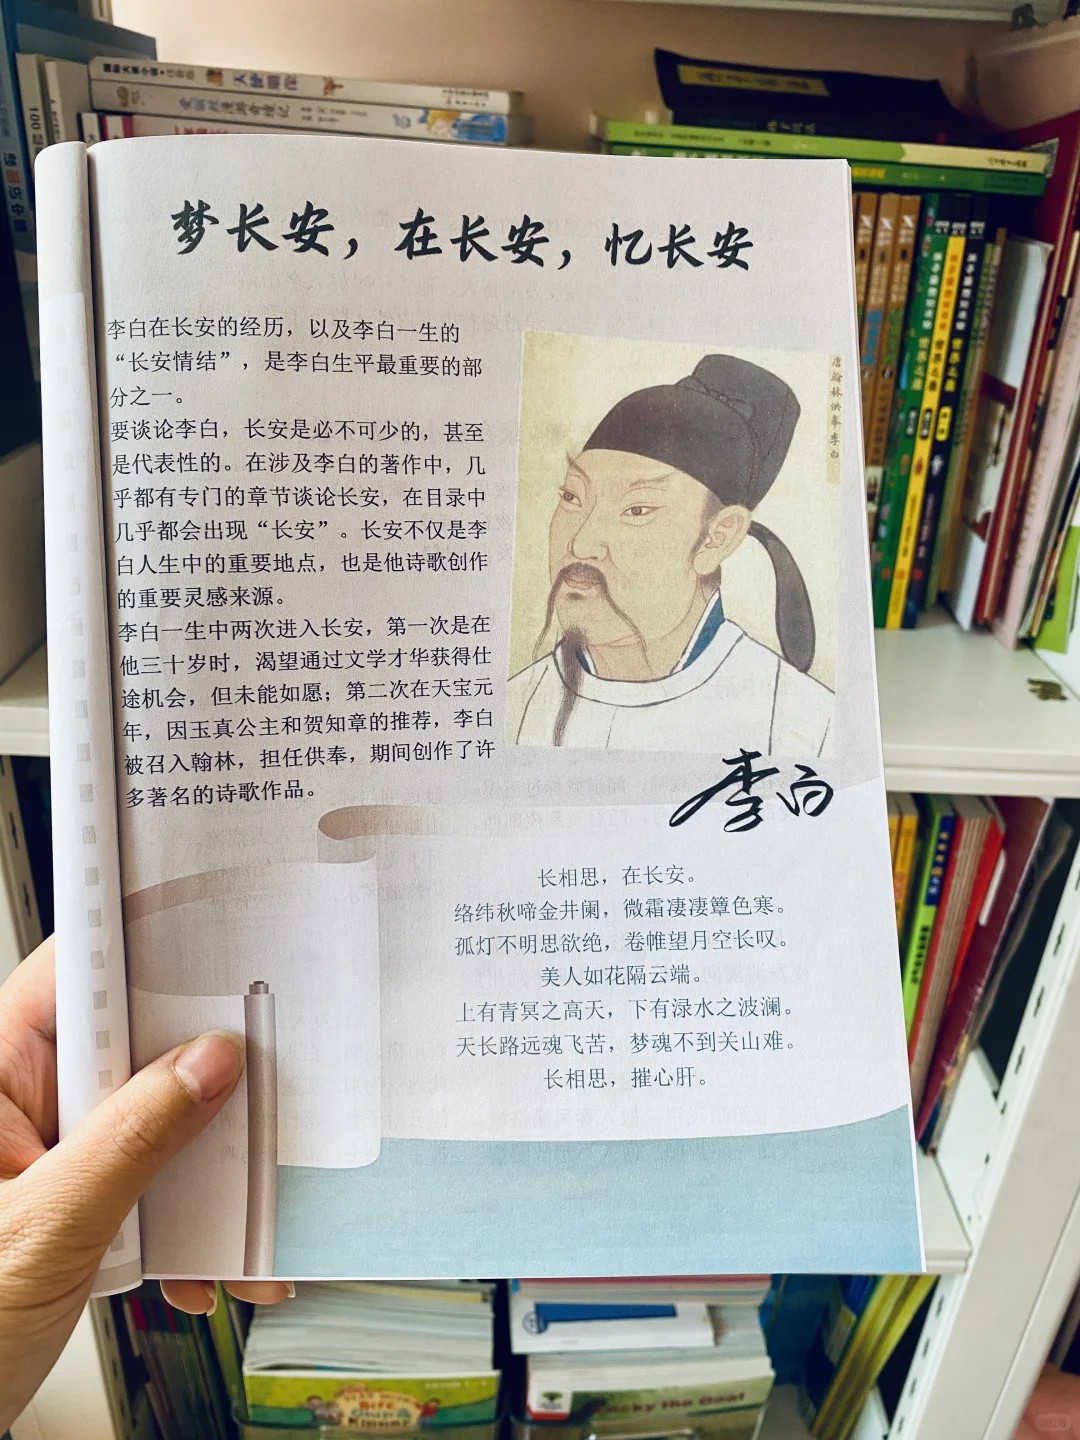 梦长安，在长安，忆长安
李白在长安的经历，以及李白一生的
“长安情结”，是李白生平最重要的部
分之一。
要谈论李白，长安是必不可少的，甚至
是代表性的。在涉及李白的著作中，几
乎都有专门的章节谈论长安，在目录中
几乎都会出现“长安”。长安不仅是李
白人生中的重要地点，也是他诗歌创作
的重要灵感来源。
李白一生中两次进入长安，第一次是在
他三十岁时，渴望通过文学才华获得仕
途机会，但未能如愿；第二次在天宝元
年，因玉真公主和贺知章的推荐，李白
被召入翰林，担任供奉，期间创作了许
多著名的诗歌作品。
唐翰林供奉李白
李白
长相思，在长安。
络纬秋啼金井阑，微霜凄凄簟色寒。
孤灯不明思欲绝，卷帷望月空长叹。
美人如花隔云端。
上有青冥之高天，下有渌水之波澜。
天长路远魂飞苦，梦魂不到关山难。
长相思，摧心肝。
小红书